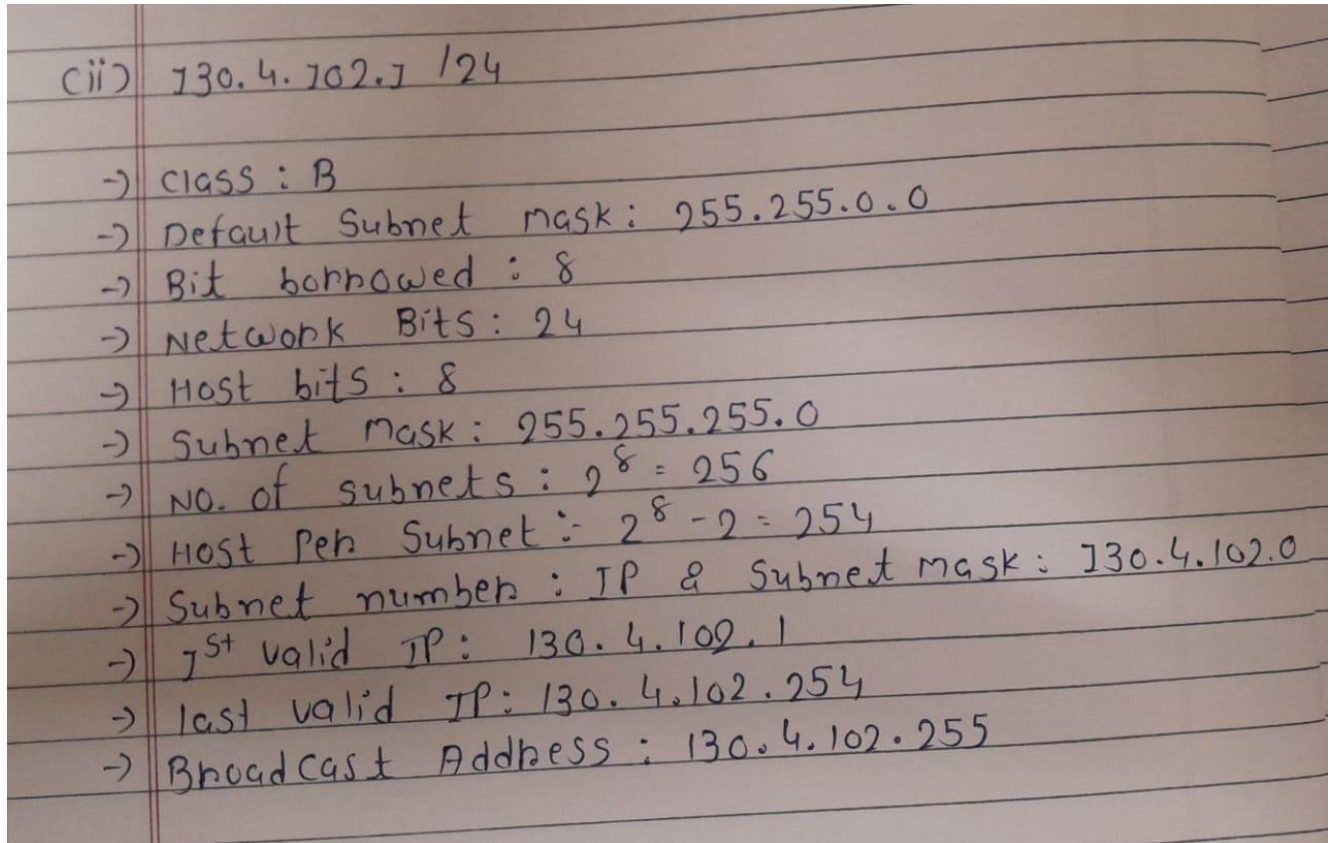 (ii) 130.4.102.1 /24
-) Class : B
-) Default Subnet mask : 255.255.0.0
-) Bit borrowed : 8
-) Network Bits : 24
-) Host bits : 8
-) Subnet mask : 255.255.255.0
-) NO. of subnets : 2^8 = 256
-) Host Per Subnet :- 2^8 - 2 = 254
-) Subnet number : IP & Subnet mask : 130.4.102.0
-) 1st valid IP : 130.4.102.1
-) last valid IP : 130.4.102.254
-) Broadcast Address : 130.4.102.255